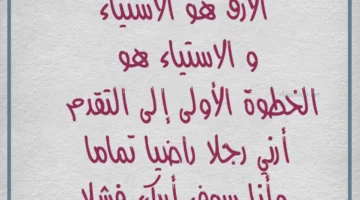 الأرق هو الاستياء
و الاستياء هو
الخطوة الأولى إلى التقدم
أرني رجلا راضيا تماما
وأنا سوف أريك فشلا